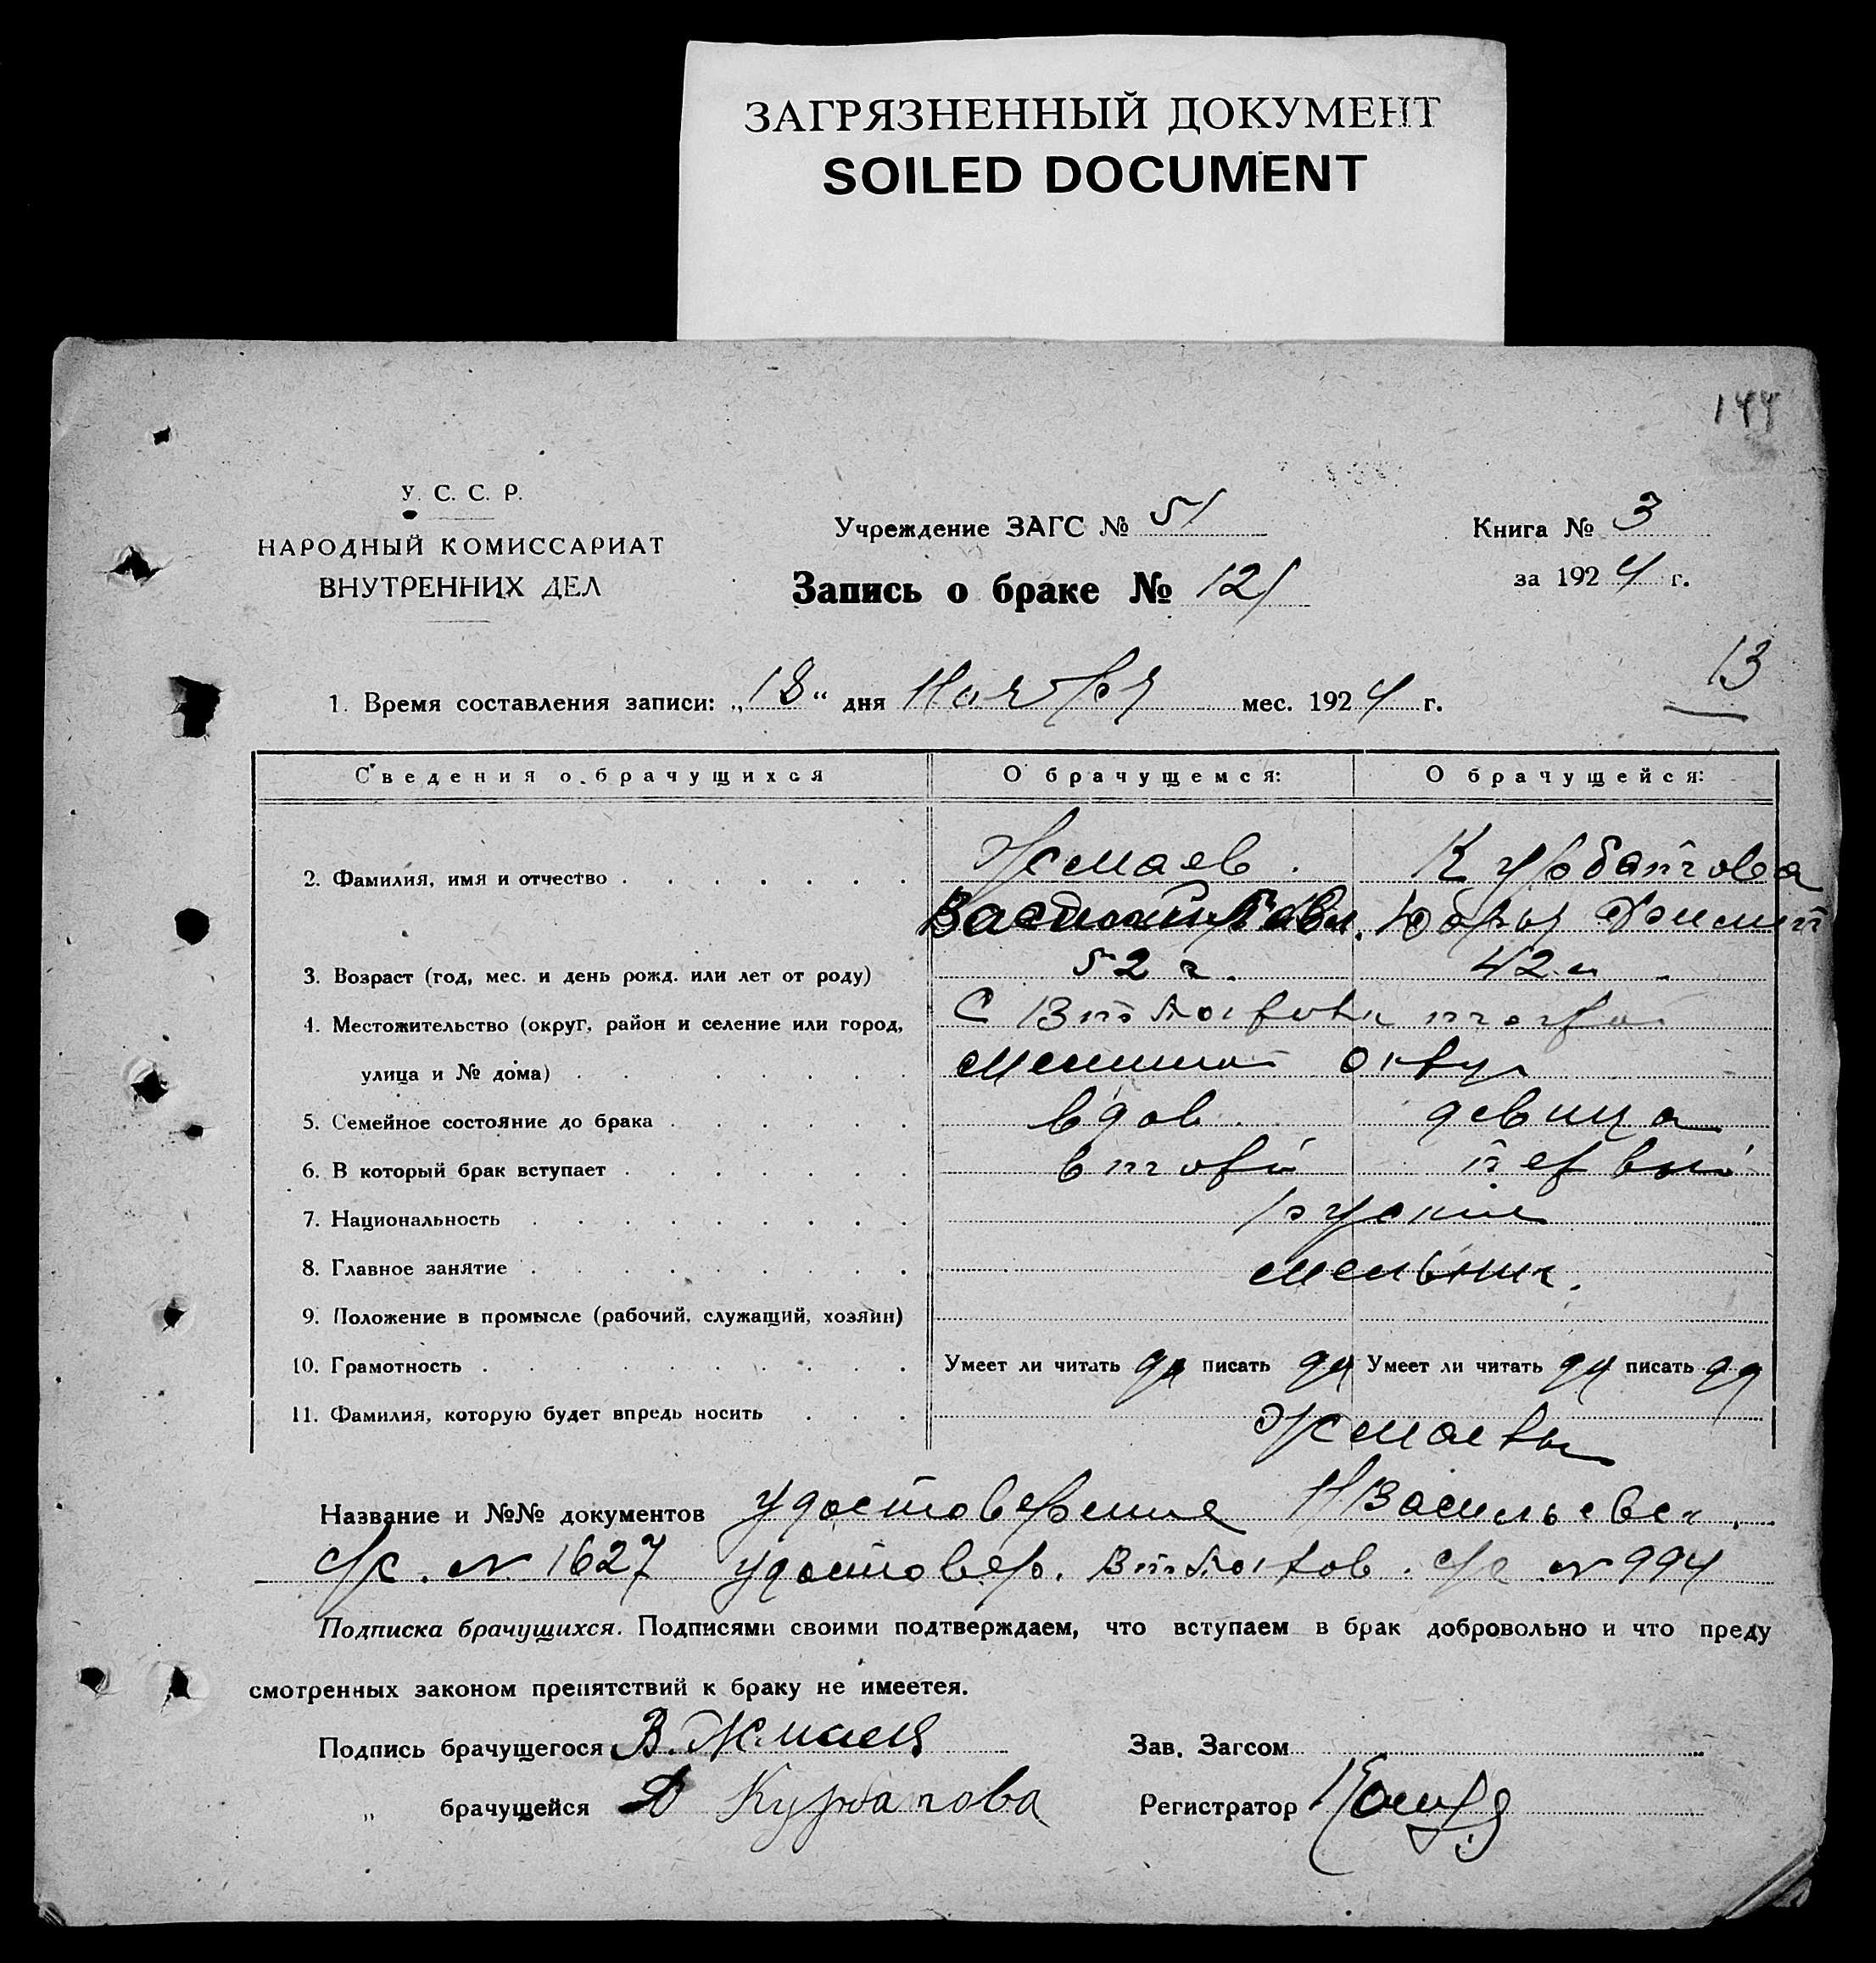 ЗАГРЯЗНЕННЫЙ ДОКУМЕНТ
SOILED DOCUMENT
144
У. С. С. Р.
НАРОДНЫЙ КОМИССАРИАТ
ВНУТРЕННИХ ДЕЛ
Учреждение ЗАГС № 51
Запись о браке № 121
Книга № 3
за 1924 г.
13
1. Время составления записи: „18“ дня Ноября мес. 1924 г.
Сведения о брачущихся О брачущемся: О брачущейся:
2. Фамилия, имя и отчество Жмаев. Курбатова
3. Возраст (год, мес. и день рожд. или лет от роду) 52 г. 42 г.
4. Местожительство (округ, район и селение или город,
улица и № дома)
5. Семейное состояние до брака вдов. девица
6. В который брак вступает второй первый
7. Национальность руские
8. Главное занятие мельник.
9. Положение в промысле (рабочий, служащий, хозяин)
10. Грамотность Умеет ли читать да писать да Умеет ли читать да писать да
11. Фамилия, которую будет впредь носить Жмаевы
Название и №№ документов удостоверение Н Васильевск.
с/с. № 1627 удостовер. с/с № 994
Подписка брачущихся. Подписями своими подтверждаем, что вступаем в брак добровольно и что преду
смотренных законом препятствий к браку не имеется.
Подпись брачущегося В. Жмаев Зав. Загсом
„ брачущейся Курбатова Регистратор